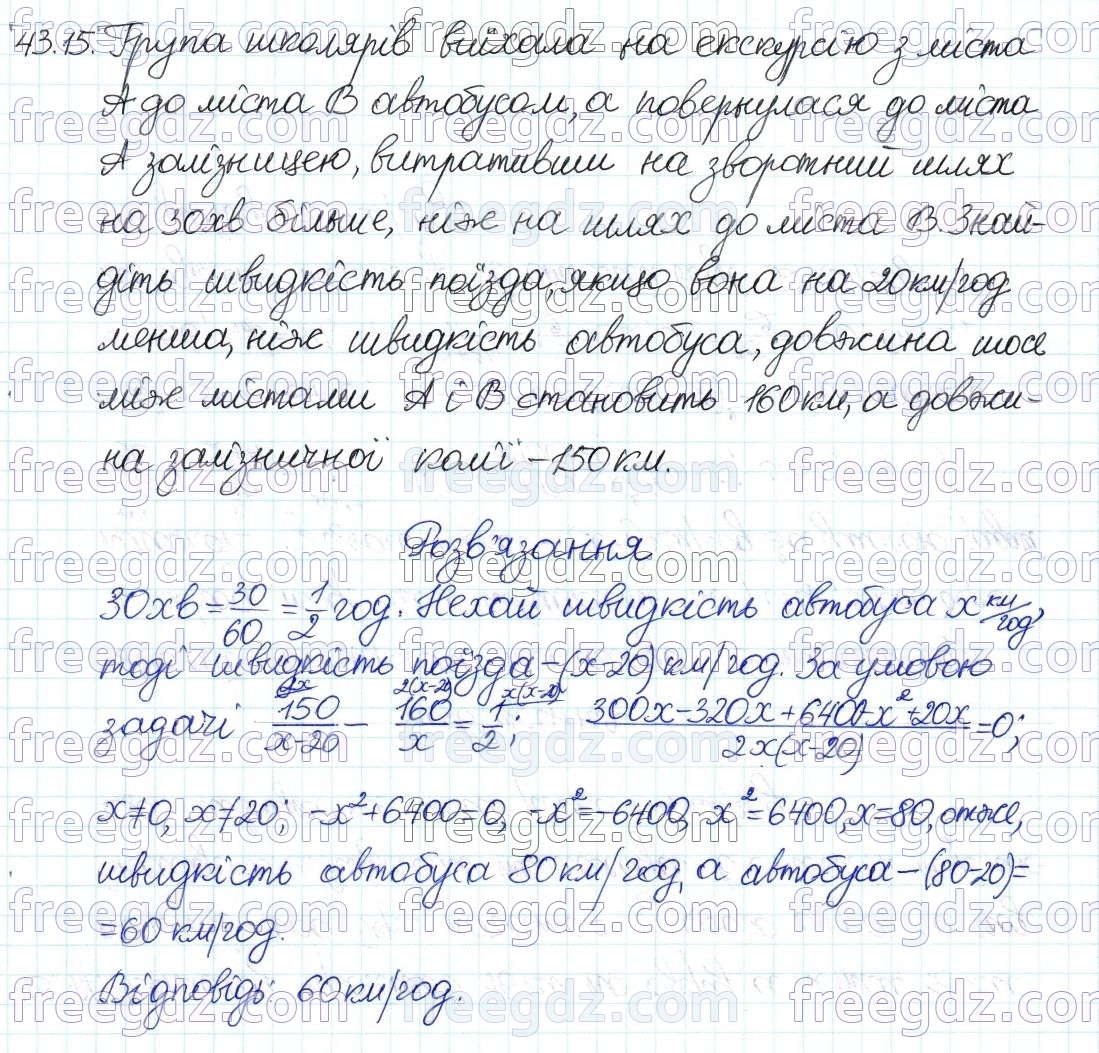 43.15. Група школярів виїхала на екскурсію з міста
А до міста В автобусом, а повернулася до міста
А залізницею, витративши на зворотний шлях
на 30хв більше, ніж на шлях до міста В. Знай-
діть швидкість поїзда, якщо вона на 20км/год
менша, ніж швидкість автобуса, довжина шосе
між містами А і В становить 160км, а довжи-
на залізничної колії – 150км.
Розв'язання
30хв = 30/60 = 1/2 год. Нехай швидкість автобуса х км/год,
тоді швидкість поїзда – (х-20) км/год. За умовою
задачі 150/(х-20) ^2х – 160/х ^2(х-20) = 1/2 ^х(х-20); (300х-320х+6400-х²+20х)/(2х(х-20)) =0;
х≠0, х≠20; -х²+6400=0, -х²=-6400, х²=6400, х=80, отже,
швидкість автобуса 80км/год, а автобуса – (80-20)=
=60 км/год.
Відповідь: 60км/год.
freegdz.com